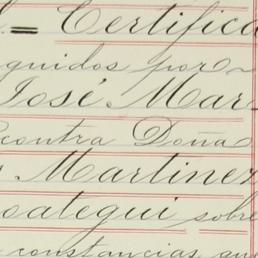 = Certifica
guidos por
José Mar
contra Doña
Martinez
oategui sobre
constancias que